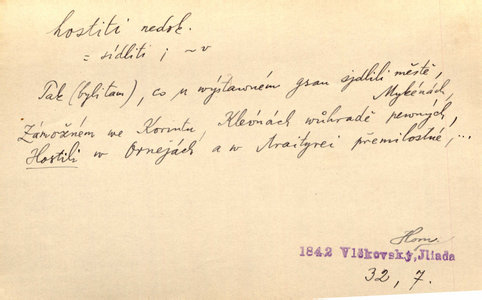 hostiti nedok.
= sídliti ; ~ v
Tak (byli tam), co u wýstawném gsau sjdlili městě,
Mykénách,
Zámožném we Korintu, Kleónách wůhradě pewných,
Hostili w Ornejách a w Araityrei přemilostné, ...
Hom
1842 Vlčkovský, Iliada
32, 7.